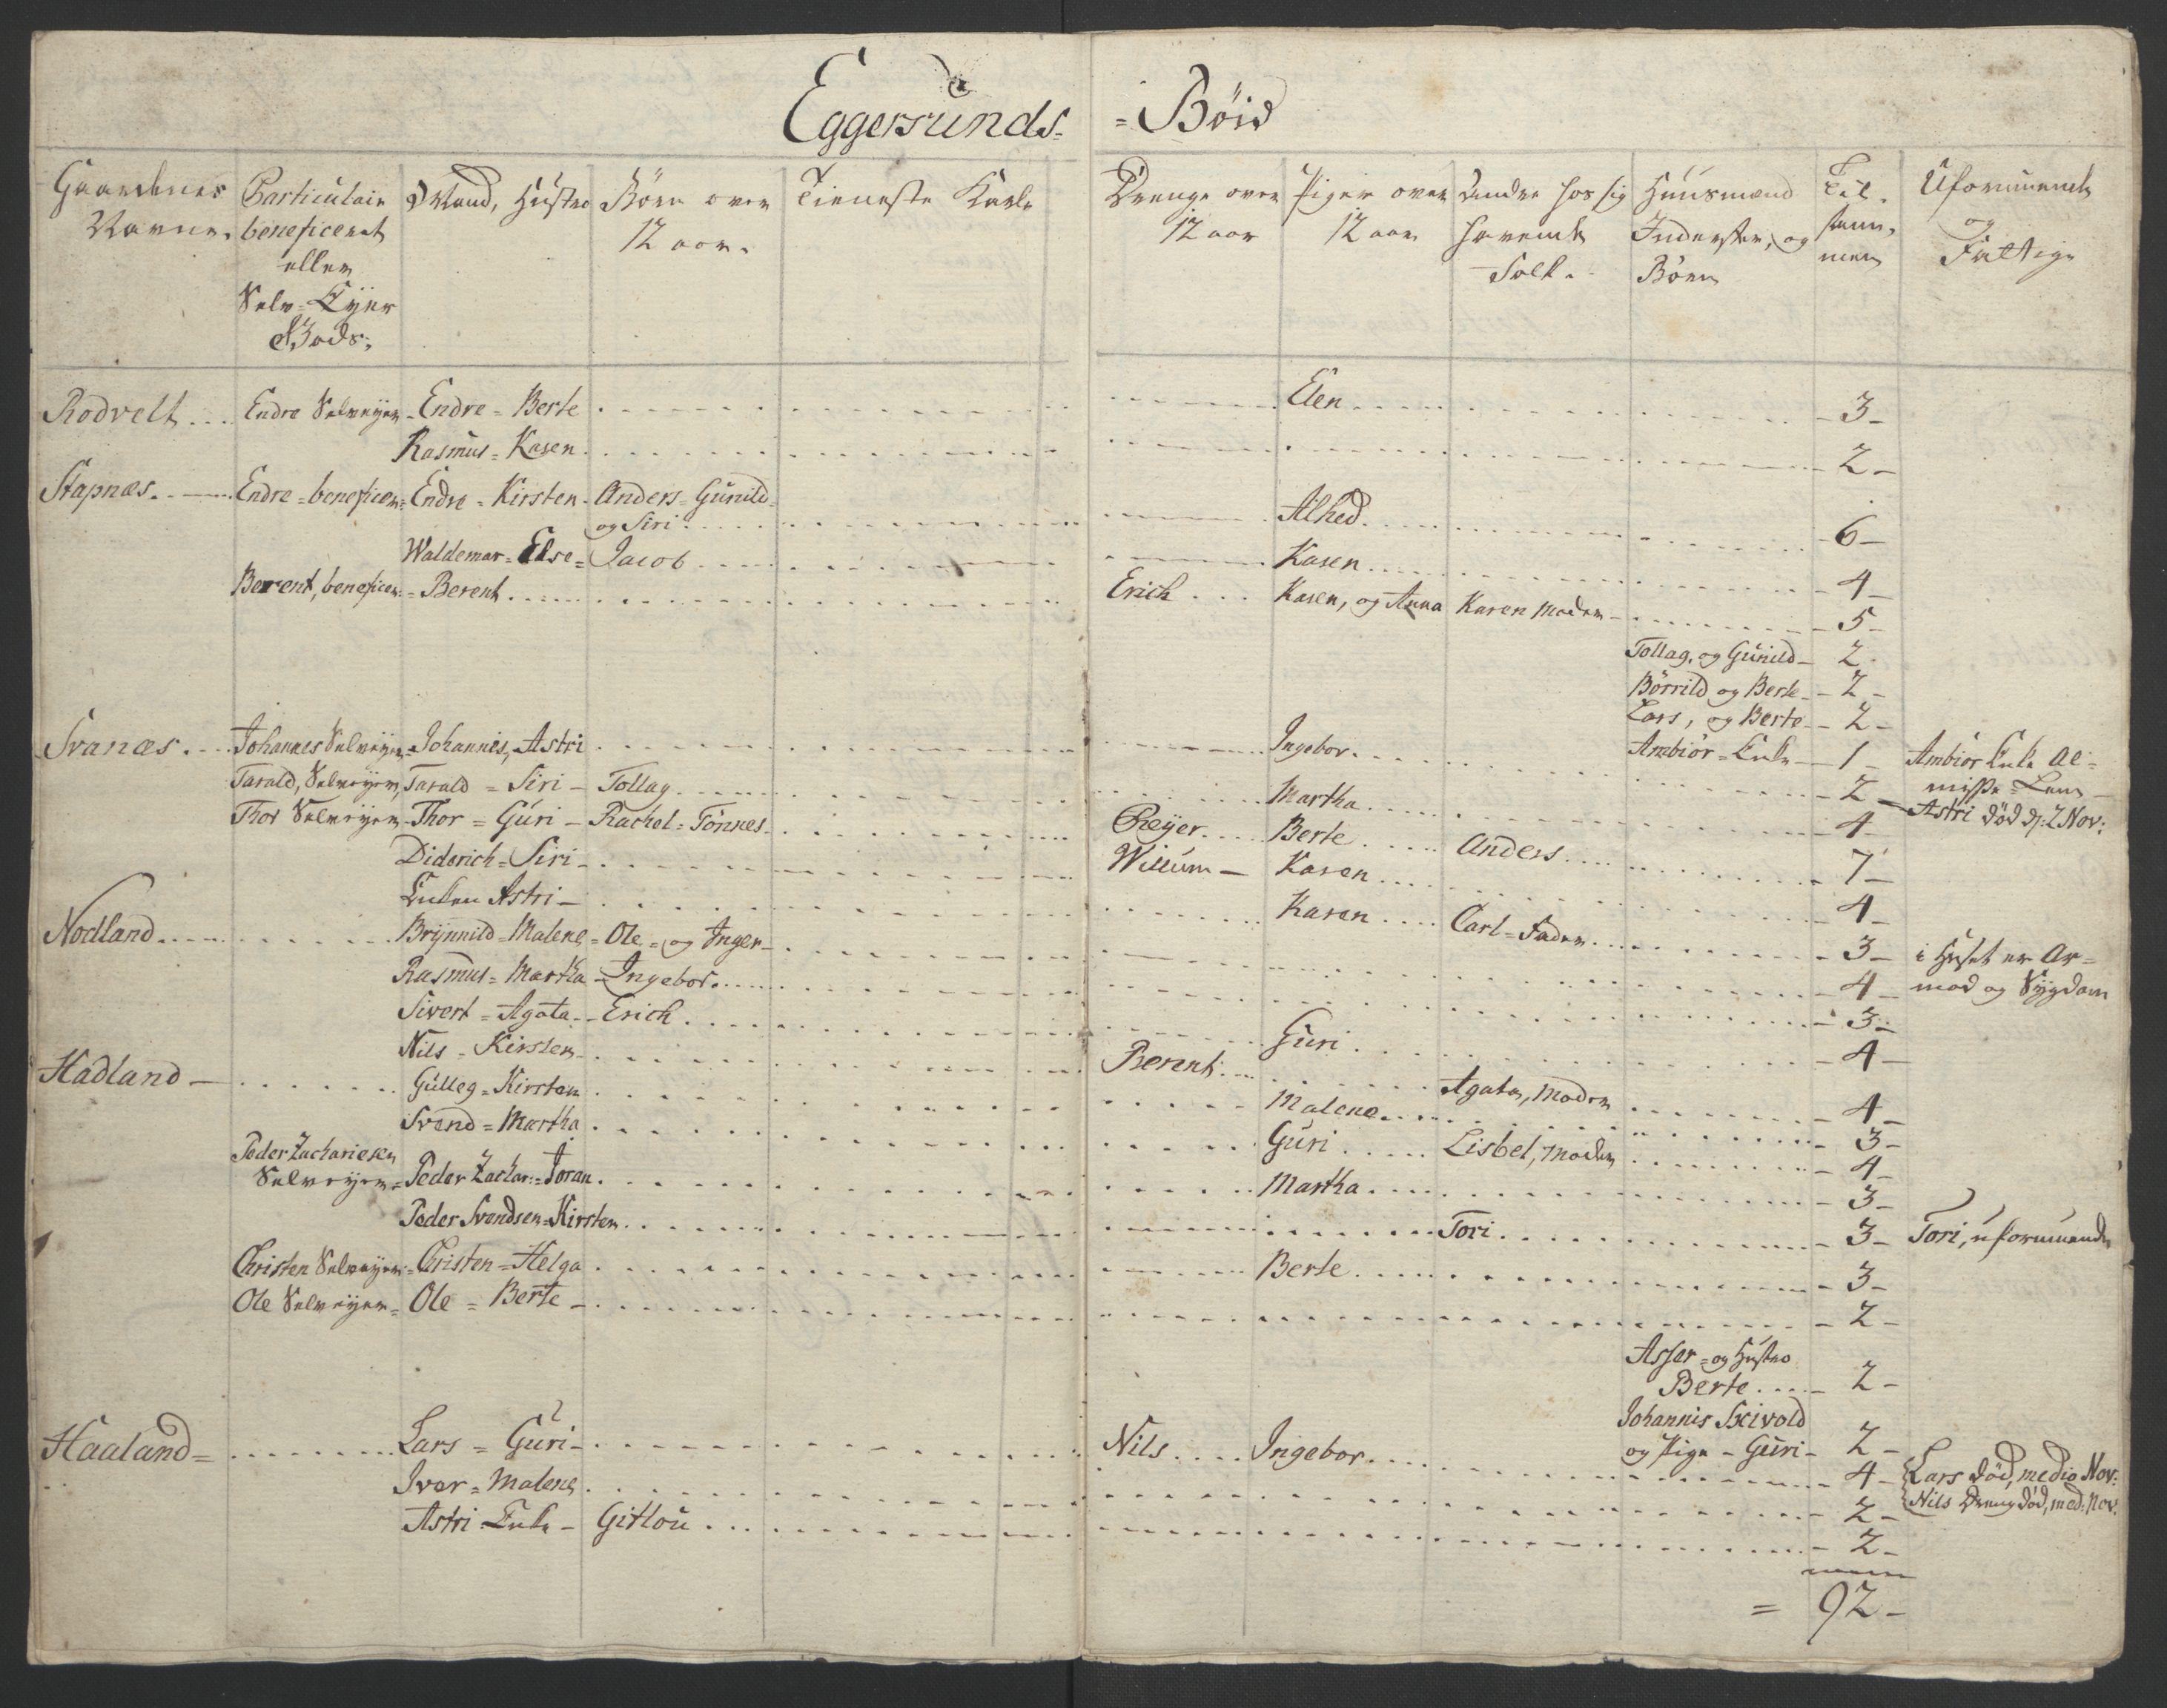 Eggersunds- =Böid
Gaardenes Navne.
Particulair beneficeret eller Selv-Eyer Gods.
Mand, Hustro
Börn over 12 aar.
Tieneste Karle
Drenge over 12 aar
Piger over 12 aar
Andre hos sig havende Folk.
Huusmænd Inderster, og Börn
Til sammen
Uformuende og Fattige
Rodvelt Endre Selveijer Endre = Berte Elen 3
Rasmus = Karen 2
Stapnæs Endre = beneficer: Endre = Kirsten Anders = Gunild
og Siri Alhed 6
Waldemar = Else = Jacob Karen 4
Berent, beneficer: Berent Erich Karen, og Anna Karen Moder 5
Tollag, og Gunild 2
Börrild og Berte 2
Lars, og Berte 2
Ambiör = Enke 1 Ambiör Enke Al=
misse = Lem
Svanæs Johannes Selveijer Johannis, Astri Ingebor 2 Astri död d: 2 Nov:
Tarald, Selveijer, Tarald = Siri Tollag Martha 4
Thor Selveijer Thor = Guri Rachel = Tönnes Reijer Berte Anders 7
Diderich = Siri Willum Karen 4
Enken Astri Karen Carl = Fader 3 i Huset er Ar=
mod og Sygdom
Nodland Brynnild = Malene = Ole = og Inger 4
Rasmus = Martha Ingebor 3
Sivert = Agata Erich Guri 4
Nils = Kirsten Berent Agata, Moder 4
Hadland Gulleg = Kirsten Malene 3
Svend = Martha Guri Lisbet, Moder 4
Peder Zachariesen
Selveijer = Peder Zachar: = Joran Martha 3
Peder Svendsen = Kirsten Tori 3 Tori, uformuende
Christen Selveijer = Christen = Helga Berte 3
Ole Selveijer = Ole = Berte 2
Asser = og Hustro
Berte 2
Johannis Sxivold
og Pige = Guri 2
Haaland = Lars = Guri Nils Ingebor 4 Lars död, medio Nov:
Nils Dreng död, med: Nov:
Iver = Malene 2
Astri Enke Gitlou 2
= 92